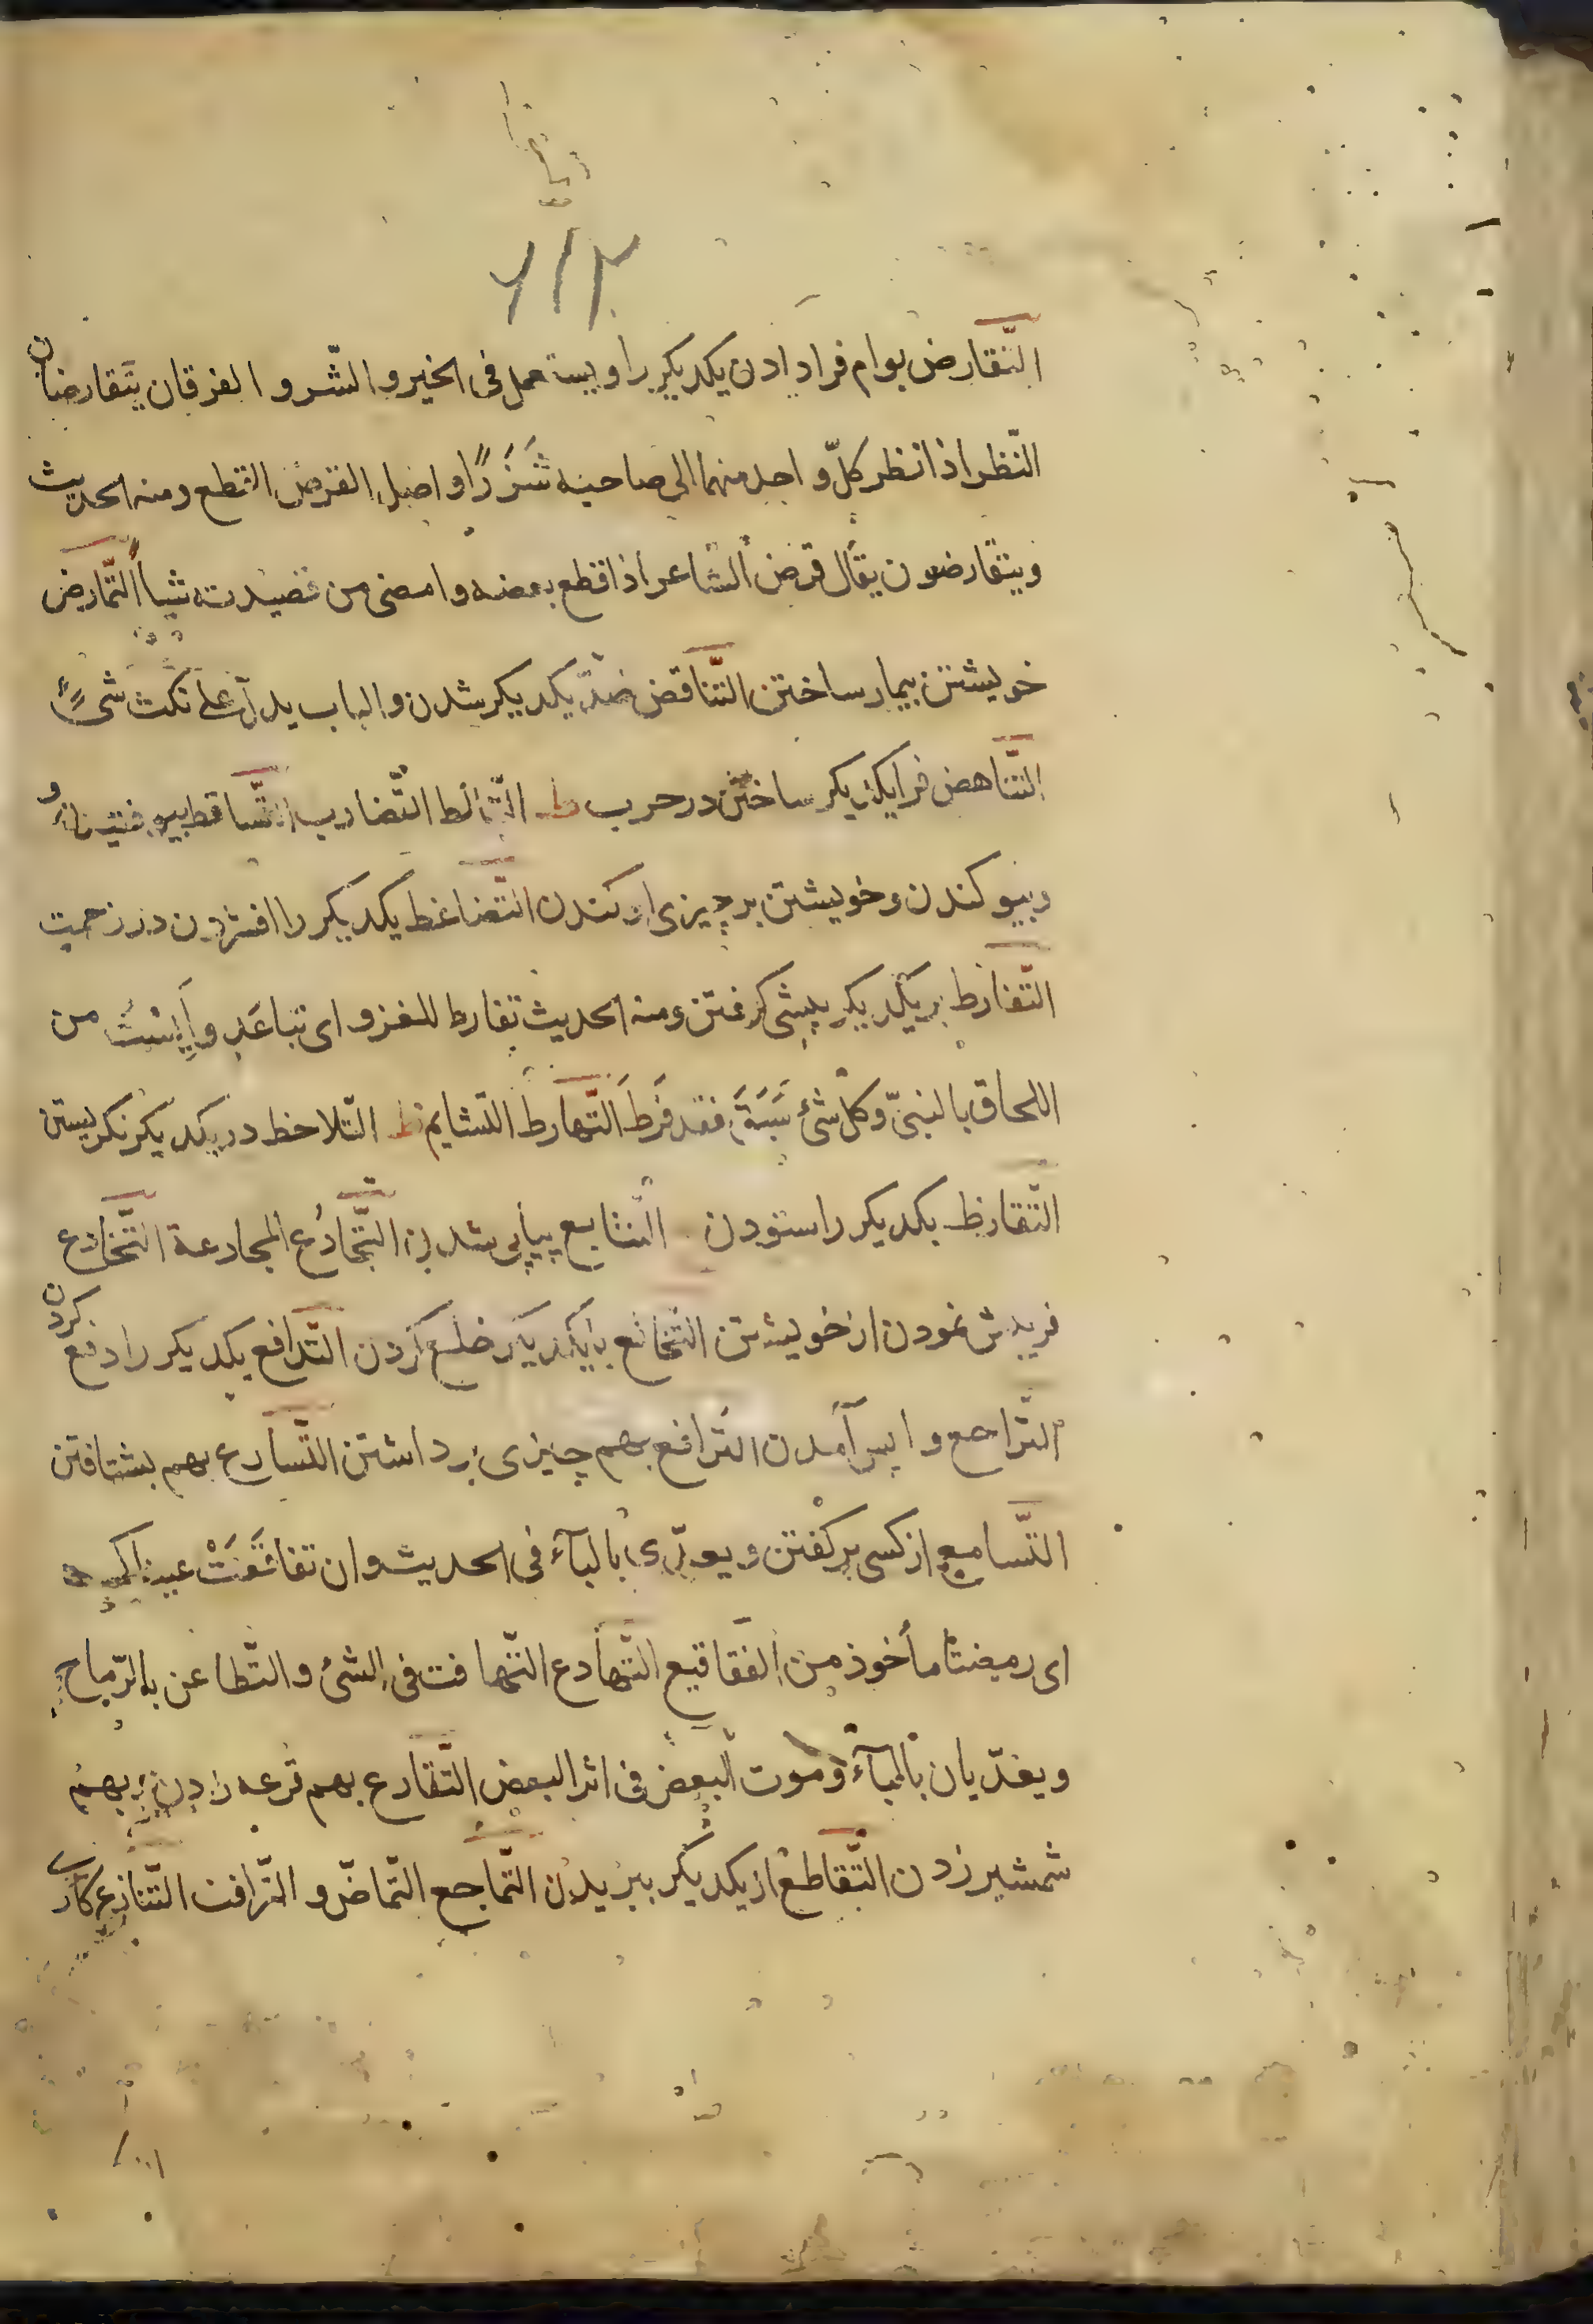 ۲۱۳
التَّقارض بوام فرادادن یکدیکر را ویستعمل فی الخیر و الشّر و القرقان یتقارضان
النّظر اذا نظر کلّ واحد منهما الی صاحبه شَزَرًا و اصل القرض القطع ومنه الحدیث
ویتقارضون یقال قرض الشاعر اذا قطع بعضه وامضی من قصیدته شیأ التّمارض
خویشتن بیمار ساختن التَّناقض ضدّ یکدیکر شدن والباب یدل علی نکث شیٔ
التَّناهض فرا یکدیکر ساختن در حرب ط التَّضارب التَّساقط بیوفتیدن
وبیوکندن وخویشتن بر چیزی اوکندن التَّضاغط یکدیکر را افشردن در زحمت
التَّفارط بر یکدیکر پیشی کرفتن ومنه الحدیث تفارط للغزو ای تباعد وأیست من
اللحاق بالنبیّ وکل شیٔ سَبَقَ فقد فَرَطَ التَّهارط التشایم ظ التّلاحظ در یکدیکر نکریستن
التَّقارظ یکدیکر را ستودن التتابع پیاپی شدن التَّجادُع المجادعة التَّخادع
فریبش نمودن از خویشتن التخالع با یکدیکر خلع کردن التَّدافع یکدیکر را دفع کردن
التَّراجع واپس آمدن التَّرافع بهم چیزی برداشتن التَّسارع بهم بشتافتن
التَّسامع از کسی بر کفتن ویعدّی بالبآء فی الحدیث وان تفاقَعَتْ عیناک
ای رمصتا مأخوذ من الفقاقیع التَّهادع التّهافت فی الشیٔ والتّطاعن بالرّماح
ویعدّیان بالبآء وموت البعض فی اثر البعض التَّقارع بهم قرعه زدن و بهم
شمشیر زدن التَّقاطع از یکدیکر ببریدن التَّماجع التّماضّ و التّرافث التّنازع